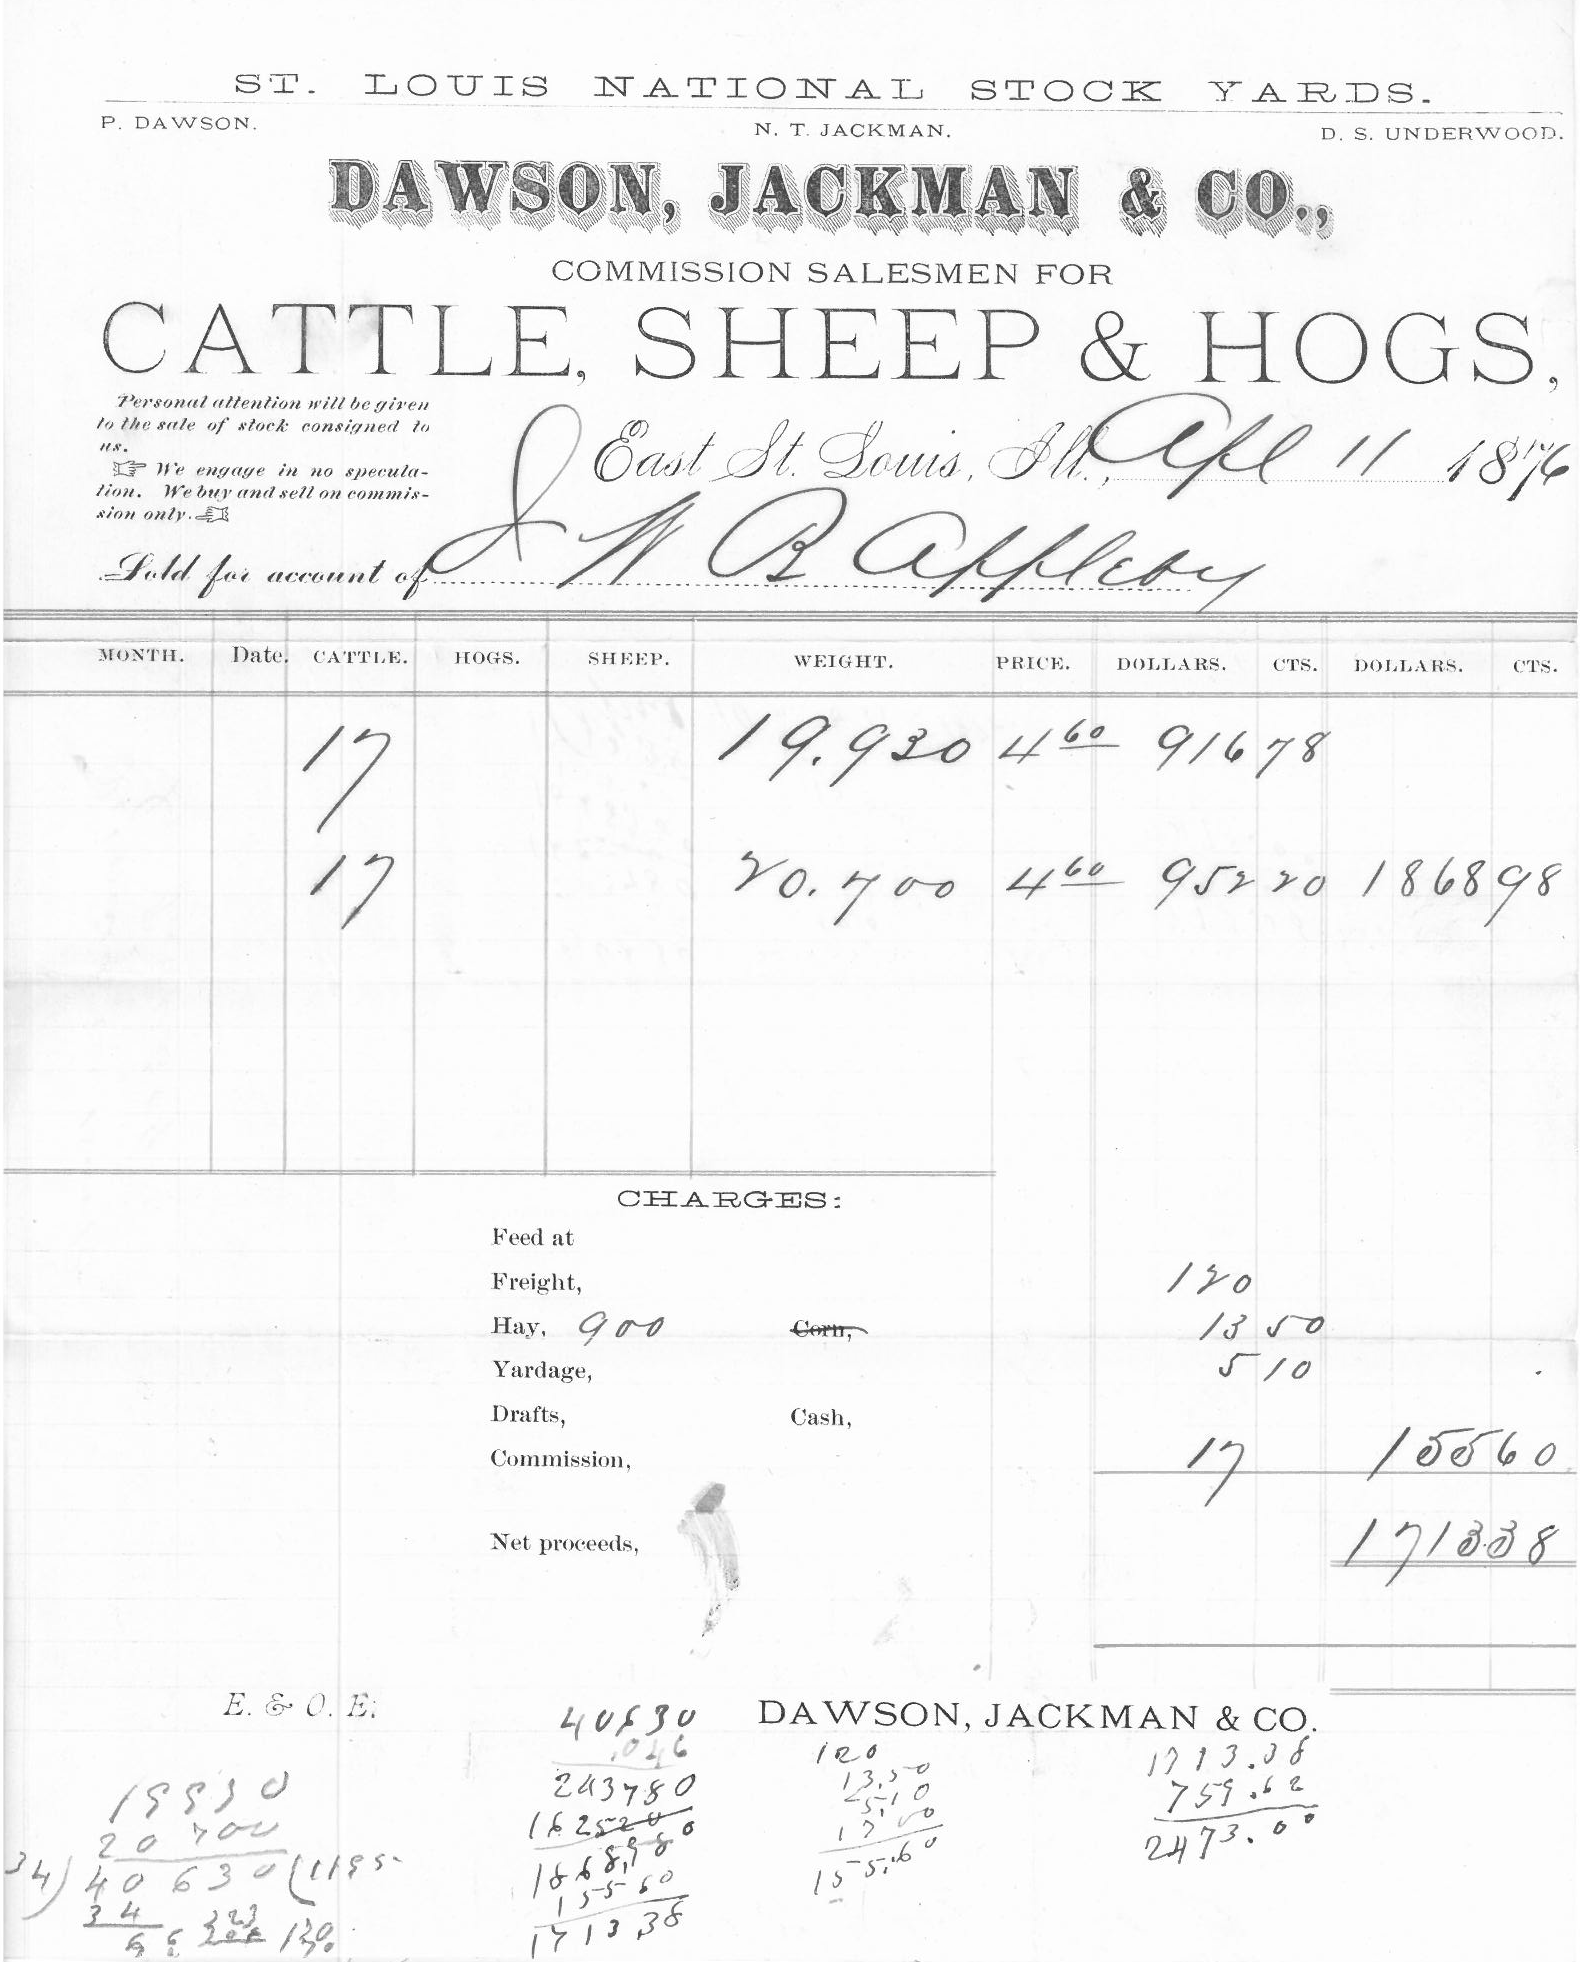 ST. LOUIS NATIONAL STOCK YARDS.
P. DAWSON. N. T. JACKMAN. D. S. UNDERWOOD.
DAWSON, JACKMAN & CO.,
COMMISSION SALESMEN FOR
CATTLE, SHEEP & HOGS,
Personal attention will be given
to the sale of stock consigned to
us.
☞ We engage in no specula-
tion. We buy and sell on commis-
sion only. ☜
East St. Louis, Ill., Apl 11 1876
Sold for account of J W B Appleby
MONTH. Date. CATTLE. HOGS. SHEEP. WEIGHT. PRICE. DOLLARS. CTS. DOLLARS. CTS.
17 19.930 4 60 916 78
17 20.700 4 60 952 20 1868 98
CHARGES:
Feed at
Freight, 120
Hay, 900 Corn, 13 50
Yardage, 5 10
Drafts, Cash,
Commission, 17 155 60
Net proceeds, 1713 38
E. & O. E.
DAWSON, JACKMAN & CO.
19930
20700
34) 40630 (1195
34
66
40630
.046
243780
162520
1868,980
15560
1713,38
120
13,50
5,10
17 00
155,60
1713.38
759.62
2473.00